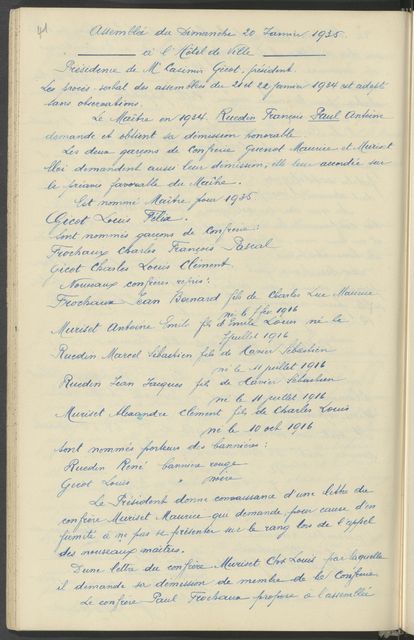 41
Assemblée du Dimanche 20 Janvier 1935.
à l'Hôtel de Ville
Présidence de Mr Casimir Gicot, président.
Les procès-verbal des assemblées du 21 et 22 janvier 1934 est adopté
sans observations.
Le Maître en 1934. Ruedin François Paul Antoine
demande et obtient sa démission honorable
Les deux garçons de Confrérie Quenet Maurice et Muriset
Eloi demandent aussi leur démission, elle leur accordée sur
le préavis favorable du Maître.
Est nommé Maître pour 1935
Gicot Louis Félix.
Sont nommés garçons de Confrérie:
Frochaux Charles François Pascal
Gicot Charles Louis Clément.
Nouveaux confrères reçus:
Frochaux Jean Bernard fils de Charles Luc Maurice
né le 1916
Muriset Antoine Emile fils d'Emile Louis né le
7 juillet 1916
Ruedin Marcel Sébastien fils de Xavier Sébastien
né le 11 juillet 1916
Ruedin Jean Jacques fils de Xavier Sébastien
né le 11 juillet 1916
Muriset Alexandre Clément fils de Charles Louis
né le 10 oct 1916
Sont nommés porteurs des bannières:
Ruedin René bannière rouge
Gicot Louis " noire
Le Président donne connaissance d'une lettre du
confrère Muriset Maurice qui demande, pour cause d'in
firmité à ne pas se présenter sur le rang lors de l'appel
des nouveaux maîtres.
D'une lettre du confrère Muriset Chs Louis par laquelle
il demande sa démission de membre de la Confrérie
Le confrère Paul Frochaux propose à l'assemblée